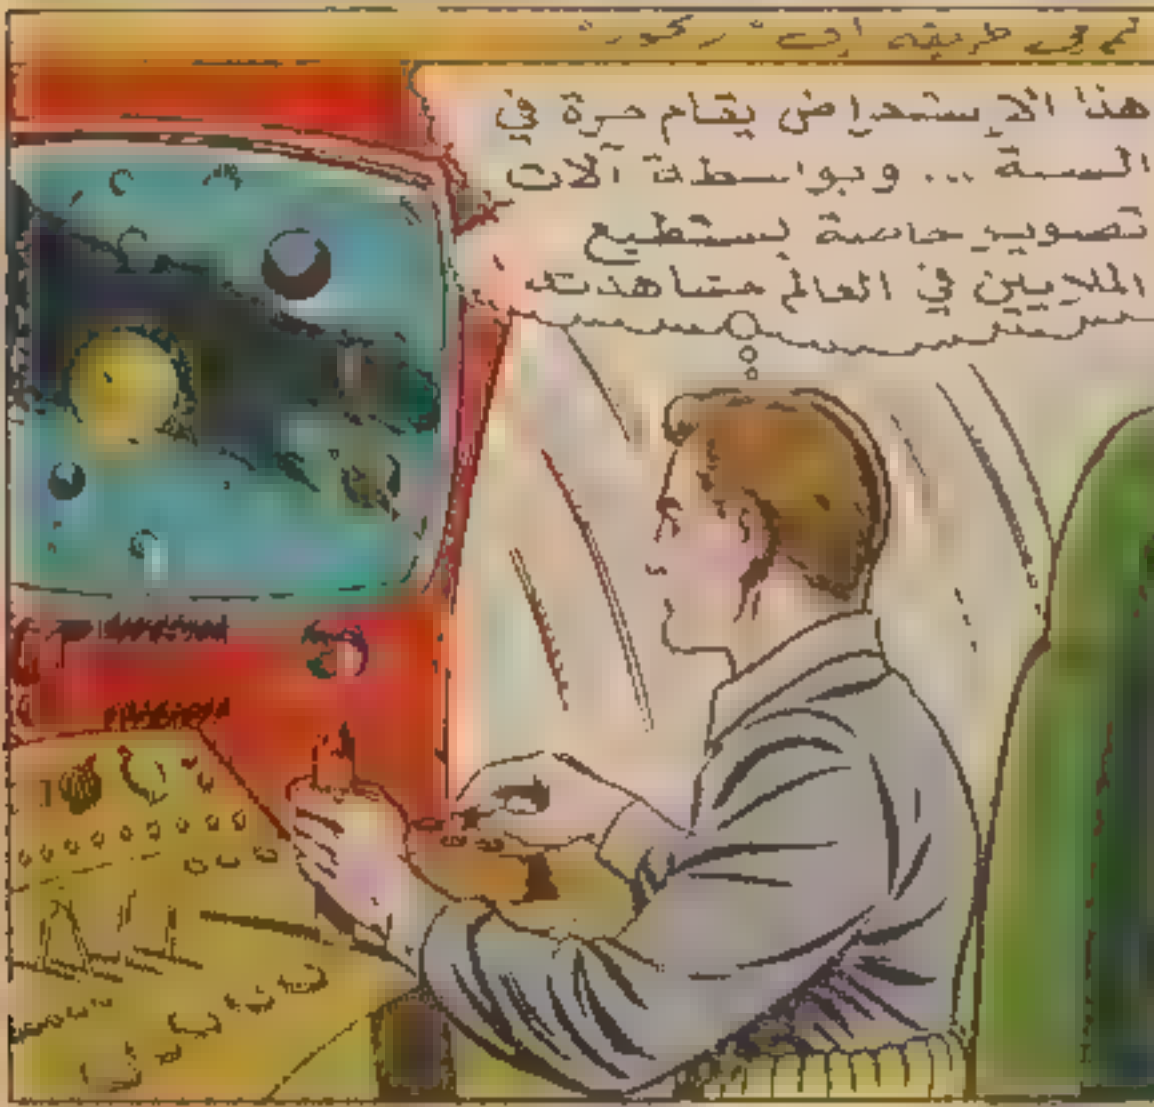 في طريقه إلى "ركور"
هذا الإستعراض يقام مرة في
السنة ... وبواسطة آلات
تصوير خاصة يستطيع
الملايين في العالم مشاهدته